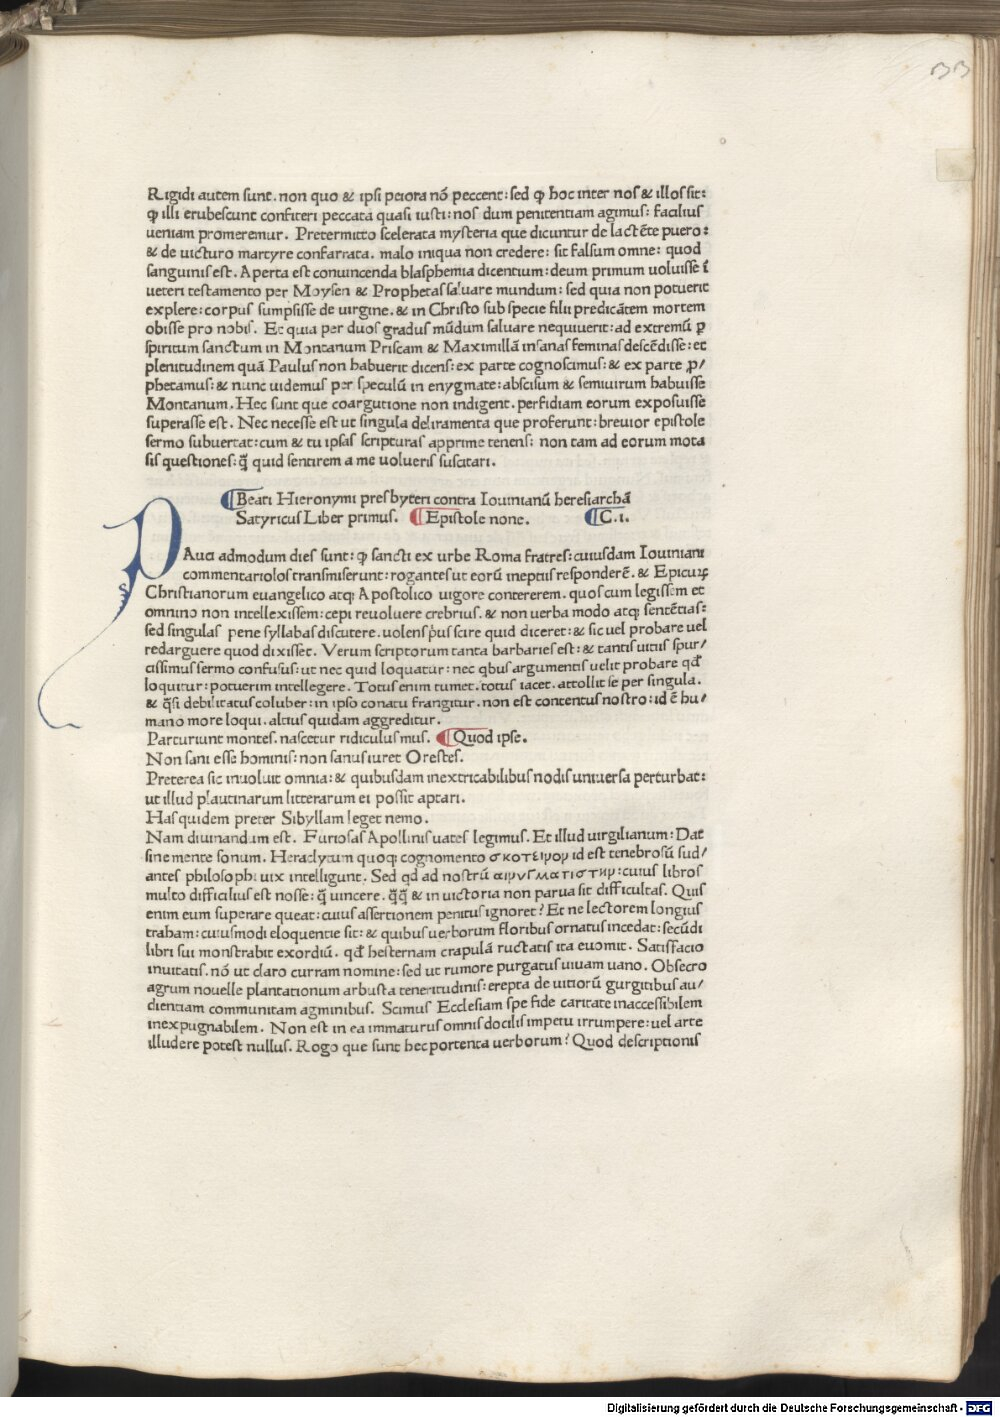 133
Rigidi autem sunt. non quo & ipsi peiora nō peccent: sed ꝙ hoc inter nos & illos sit:
ꝙ illi erubescunt confiteri peccata quasi iusti: nos dum penitentiam agimus: facilius
ueniam promeremur. Pretermitto scelerata mysteria que dicuntur de lactēte puero:
& de uicturo martyre confarrata. malo iniqua non credere: sit falsum omne: quod
sanguinis est. Aperta est conuincenda blasphemia dicentium: deum primum uoluisse ī
ueteri testamento per Moysen & Prophetas saluare mundum: sed quia non potuerit
explere: corpus sumpsisse de uirgine. & in Christo sub specie filii predicātem mortem
obisse pro nobis. Et quia per duos gradus mūdum saluare nequiuerit: ad extremū ꝑ
spiritum sanctum in Montanum Priscam & Maximillā insanas feminas descēdisse: et
plenitudinem quā Paulus non habuerit dicens: ex parte cognoscimus: & ex parte ꝓ/
phetamus: & nunc uidemus per speculū in enygmate: abscisum & semiuirum habuisse
Montanum. Hec sunt que coargutione non indigent. perfidiam eorum exposuisse
superasse est. Nec necesse est ut singula deliramenta que proferunt: breuior epistole
sermo subuertat: cum & tu ipsas scripturas apprime tenens: non tam ad eorum mota
sis questiones: q̄ quid sentirem a me uolueris suscitari.
Beati Hieronymi presbyteri contra Iouinianū heresiarchā
Satyricus Liber primus. Epistole none. C.i.
PAuci admodum dies sunt: ꝙ sancti ex urbe Roma fratres: cuiusdam Iouiniani
commentariolos transmiserunt: rogantes ut eorū ineptiis responderē. & Epicurꝫ
Christianorum euangelico atqꝫ Apostolico uigore contererem. quos cum legissem et
omnino non intellexissem: cepi reuoluere crebrius. & non uerba modo atqꝫ sentētias:
sed singulas pene syllabas discutere. uolens p̄us scire quid diceret: & sic uel probare uel
redarguere quod dixisset. Verum scriptorum tanta barbaries est: & tantis uitiis spur/
cissimus sermo confusus: ut nec quid loquatur: nec qbus argumentis uelit probare qđ
loquitur: potuerim intellegere. Totus enim tumet. totus iacet. attollit se per singula.
& q̄si debilitatus coluber: in ipso conatu frangitur. non est contentus nostro: id ē hu/
mano more loqui. altius quidam aggreditur.
Parturiunt montes. nascetur ridiculus mus. Quod ipse.
Non sani esse hominis: non sanus iuret Orestes.
Preterea sic inuoluit omnia: & quibusdam inextricabilibus nodis uniuersa perturbat:
ut illud plautinarum litterarum ei possit aptari.
Has quidem preter Sibyllam leget nemo.
Nam diuinandum est. Furiosas Apollinis uates legimus. Et illud uirgilianum: Dat
sine mente sonum. Heraclytum quoqꝫ cognomento σκοτεινον id est tenebrosū sud/
antes philosophi uix intelligunt. Sed qđ ad nostrū αινγματιστην: cuius libros
multo difficilius est nosse: q̄ uincere. q̄q̄ & in uictoria non parua sit difficultas. Quis
enim eum superare queat: cuius assertionem penitus ignoret? Et ne lectorem longius
traham: cuiusmodi eloquentie sit: & quibus uerborum floribus ornatus incedat: secūdi
libri sui monstrabit exordiū. qđ hesternam crapulā ructatis ita euomit. Satisfacio
inuitatis. nō ut claro curram nomine: sed ut rumore purgatus uiuam uano. Obsecro
agrum nouelle plantationum arbusta teneritudinis: erepta de uitiorū gurgitibus au/
dientiam communitam agminibus. Scimus Ecclesiam spe fide caritate inaccessibilem
inexpugnabilem. Non est in ea immaturus omnis docilis impetu irrumpere: uel arte
illudere potest nullus. Rogo que sunt hec portenta uerborum? Quod descriptionis
Digitalisierung gefördert durch die Deutsche Forschungsgemeinschaft - DFG